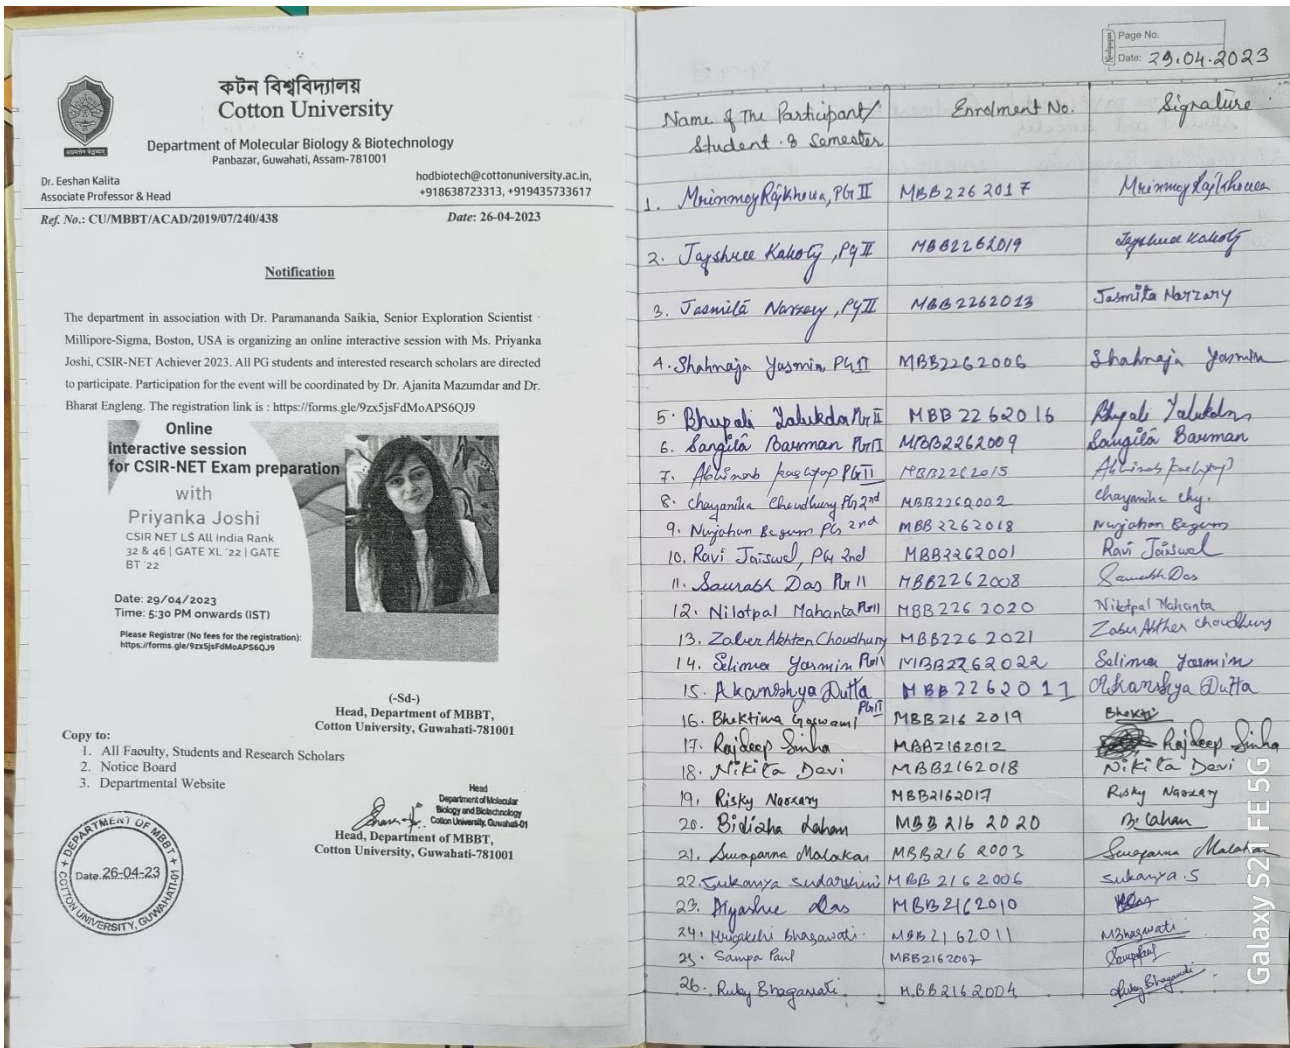 কটন বিশ্ববিদ্যালয়
Cotton University
Department of Molecular Biology & Biotechnology
Panbazar, Guwahati, Assam-781001
Dr. Eeshan Kalita
Associate Professor & Head
hodbiotech@cottonuniversity.ac.in,
+918638723313, +919435733617
Ref. No.: CU/MBBT/ACAD/2019/07/240/438
Date: 26-04-2023
Notification
The department in association with Dr. Paramananda Saikia, Senior Exploration Scientist
Millipore-Sigma, Boston, USA is organizing an online interactive session with Ms. Priyanka
Joshi, CSIR-NET Achiever 2023. All PG students and interested research scholars are directed
to participate. Participation for the event will be coordinated by Dr. Ajanita Mazumdar and Dr.
Bharat Engleng. The registration link is : https://forms.gle/9zx5jsFdMoAPS6QJ9
Online
interactive session
for CSIR-NET Exam preparation
with
Priyanka Joshi
CSIR NET LS All India Rank
32 & 46 | GATE XL '22 | GATE
BT '22
Date: 29/04/2023
Time: 5:30 PM onwards (IST)
Please Registrar (No fees for the registration):
https://forms.gle/9zx5jsFdMoAPS6QJ9
(-Sd-)
Head, Department of MBBT,
Cotton University, Guwahati-781001
Copy to:
1. All Faculty, Students and Research Scholars
2. Notice Board
3. Departmental Website
Head
Department of Molecular
Biology and Biotechnology
Cotton University, Guwahati-01
Head, Department of MBBT,
Cotton University, Guwahati-781001
DEPARTMENT OF MBBT
Date 26-04-23
COTTON UNIVERSITY, GUWAHATI-01
Page No.
Date: 29.04.2023
Name of The Participant/ Student & Semester Enrolment No. Signature
1. Mrinmoy Rajkhowa, PG II MBB2262017 Mrinmoy Rajkhowa
2. Jayshree Kakoty, PG II MBB2262019 Jayshree Kakoty
3. Jasmita Narzary, PG II MBB2262013 Jasmita Narzary
4. Shahnaja Yasmin, PG II MBB2262006 Shahnaja Yasmin
5. Bhupali Talukdar PG II MBB2262016 Bhupali Talukdar
6. Sangita Barman PG II MBB2262009 Sangita Barman
7. Abhinab Kashyap PG II MBB2262015 Abhinab Kashyap
8. Chayanika Choudhury PG 2nd MBB2262002 Chayanika Chy.
9. Nurjahan Begum PG 2nd MBB2262018 Nurjahan Begum
10. Ravi Jaiswal, PG 2nd MBB2262001 Ravi Jaiswal
11. Saurabh Das PG II MBB2262008 Saurabh Das
12. Nilotpal Mahanta PG II MBB2262020 Nilotpal Mahanta
13. Zaber Akhter Choudhury MBB2262021 Zaber Akhter Choudhury
14. Selima Yasmin PG II MBB2262022 Selima Yasmin
15. Akanshya Dutta PG II MBB2262011 Akanshya Dutta
16. Bhaktima Goswami MBB2162019 Bhakti
17. Rajdeep Sinha MBB2162012 Rajdeep Sinha
18. Nikita Devi MBB2162018 Nikita Devi
19. Risky Narzary MBB2162017 Risky Narzary
20. Bidisha Lahan MBB2162020 B. Lahan
21. Swaparna Malakar MBB2162003 Swaparna Malakar
22. Sukanya Sudarshini MBB2162006 Sukanya.S
23. Das MBB2162010
24. Mrigakshi Bhagawati. MBB2162011 MBhagwati
25. Sampa Paul MBB2162007
26. Ruby Bhagawati MBB2162004 Ruby Bhagawati
Galaxy S21 FE 5G